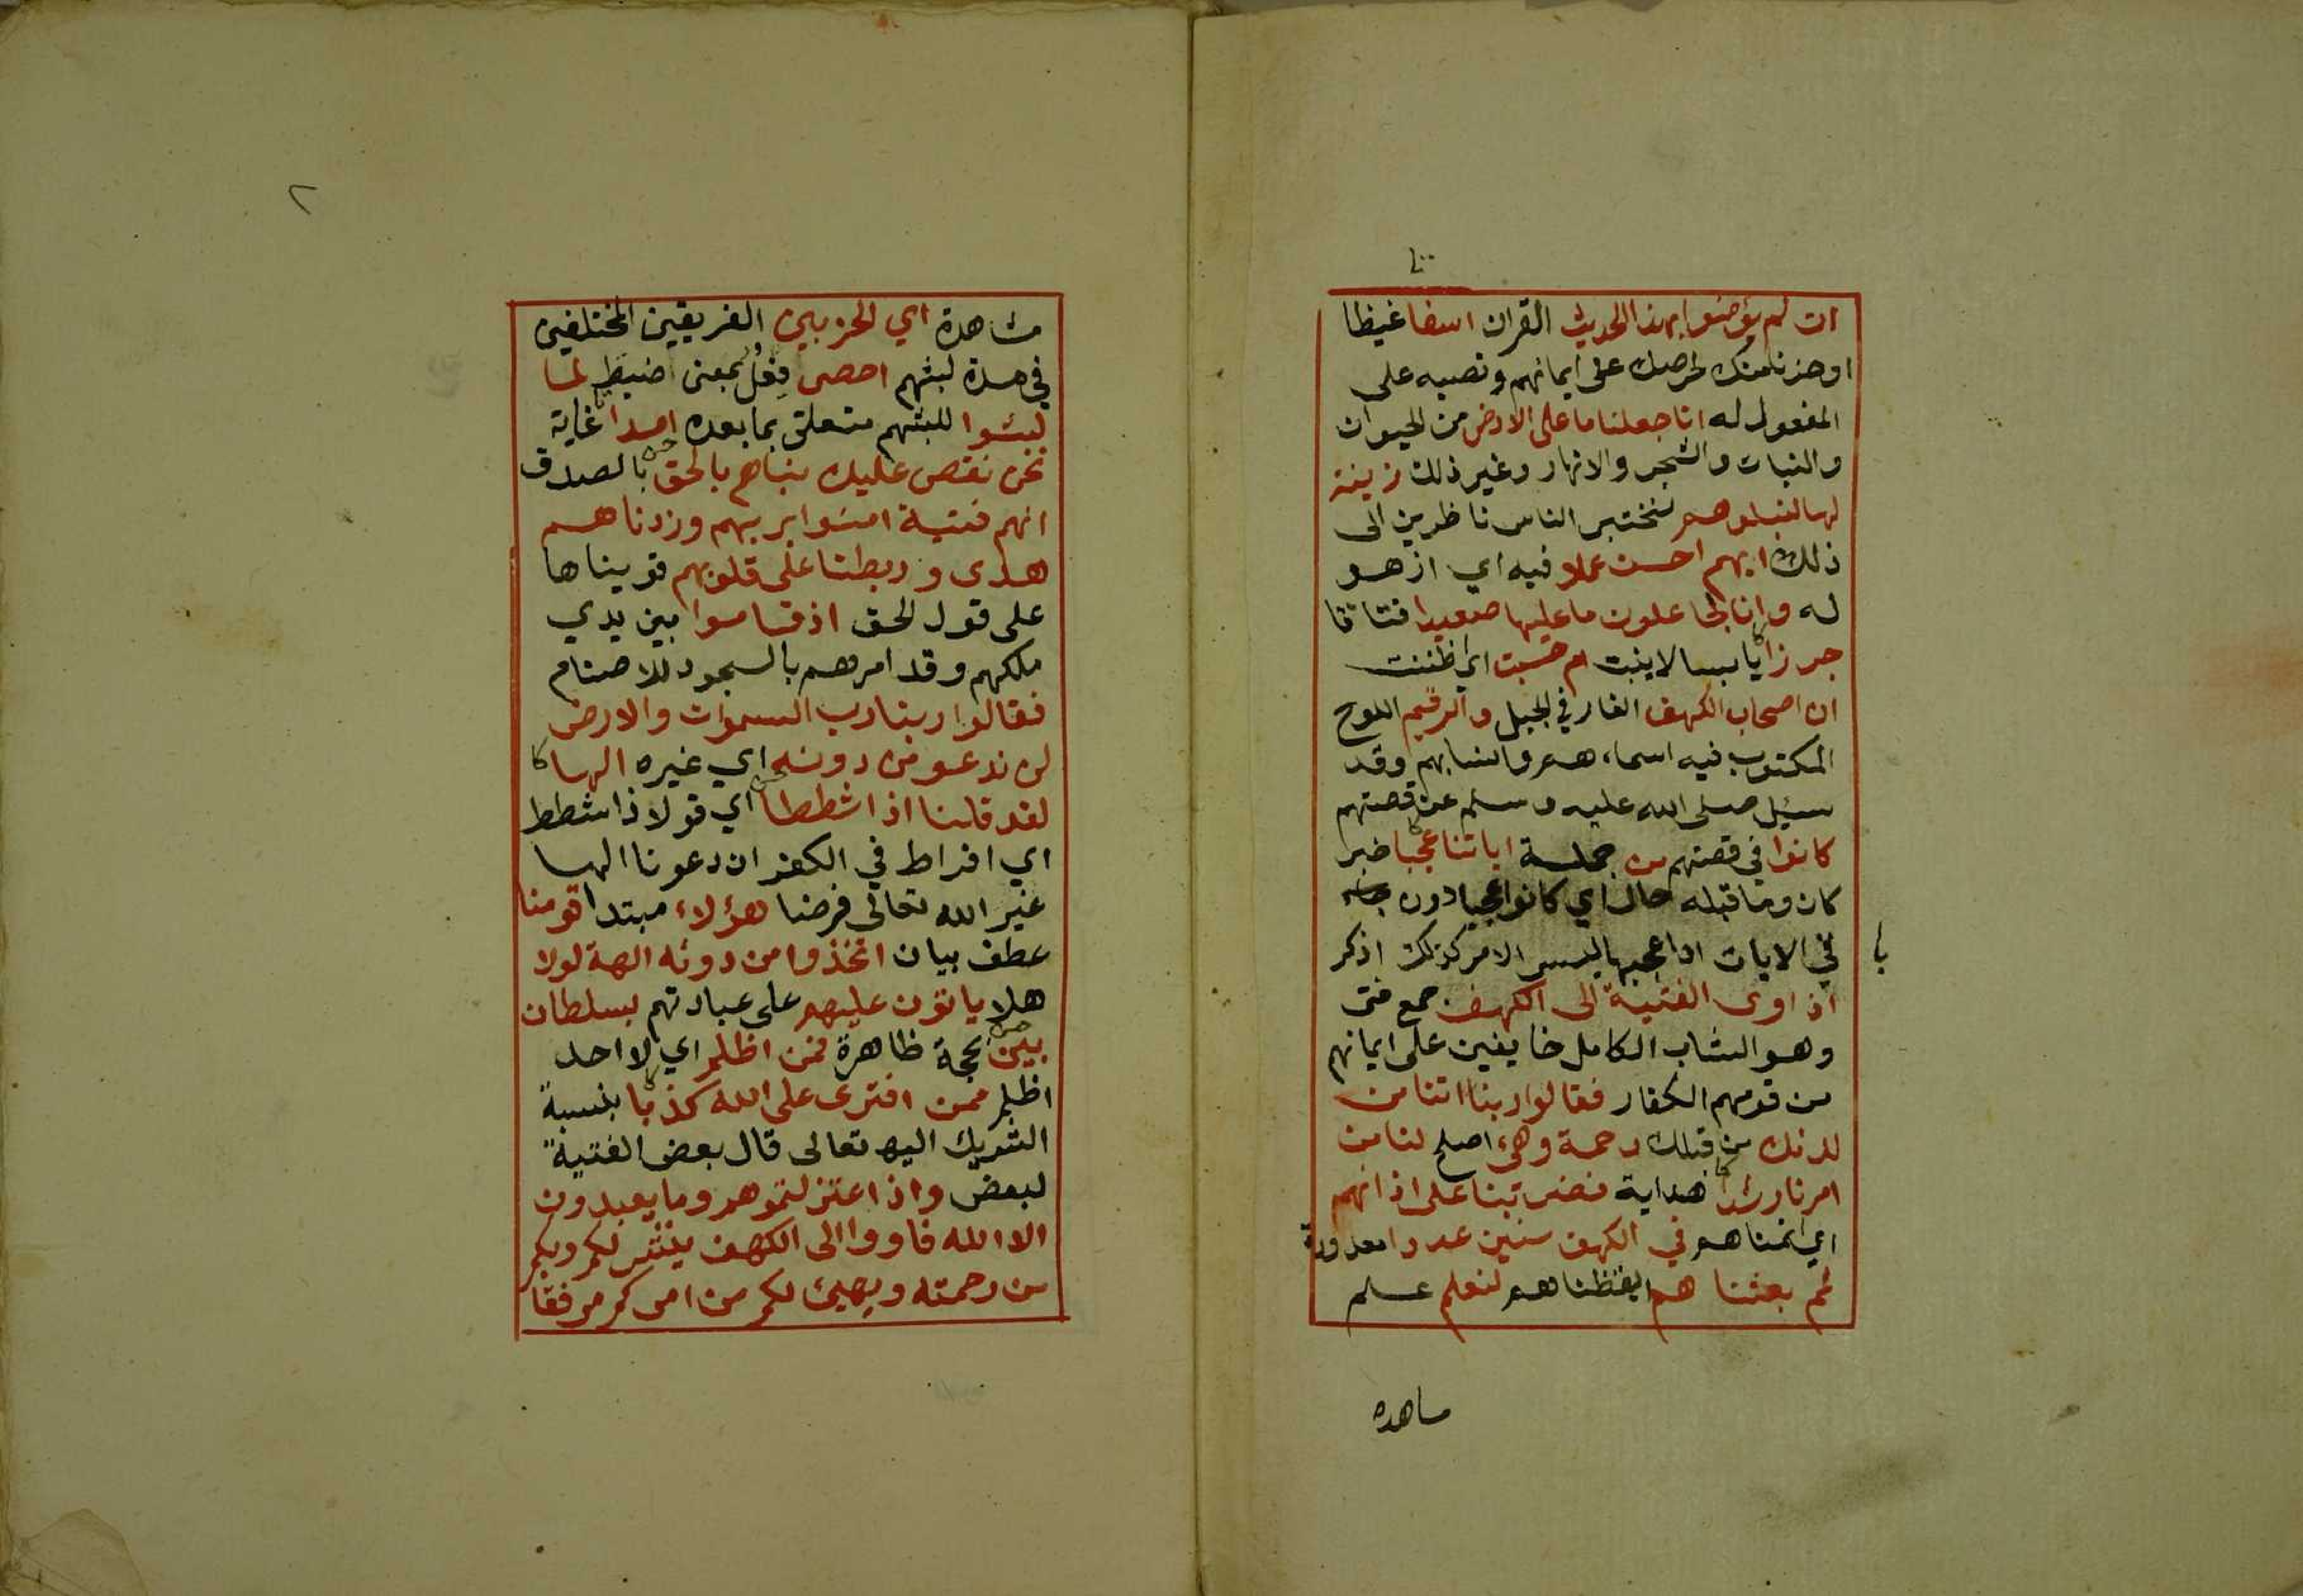 ان لم يؤمنوا بهذا الحديث القران اسفا غيظا
او حزنا منك لحرصك على ايمانهم ونصبه على
المفعول له انا جعلنا ما على الارض من الحيوان
والنبات والشجر والانهار وغير ذلك زينة
لها لنبلوهم لنختبر الناس ناظرين الى
ذلك ايهم احسن عملا فيه اي ازهد
له وانا لجاعلون ما عليها صعيدا فتاتا
جرزا يابسا لا ينبت ام حسبت اي ظننت
ان اصحاب الكهف الغار في الجبل والرقيم اللوح
المكتوب فيه اسماءهم وانسابهم وقد
سئل صلى الله عليه وسلم عن قصتهم
كانوا في قصتهم من جملة اياتنا عجبا خبر
كان وما قبله حال اي كانوا عجبا دون
في الايات او اعجبها ليس الامر كذلك اذكر
اذ اوى الفتية الى الكهف جمع فتى
وهو الشاب الكامل خايفين على ايمانهم
من قومهم الكفار فقالوا ربنا اتنا من
لدنك من قبلك رحمة وهيء اصلح لنا من
امرنا رشدا هداية فضربنا على اذانهم
اي انمناهم في الكهف سنين عددا معدودة
ثم بعثنا هم ايقظناهم لنعلم علم
مساهده
٢
مشاهدة اي الحزبين الفريقين المختلفين
في مدة لبثهم احصى فعل بمعنى اضبط لما
لبثوا للبثهم متعلق بما بعده امدا غاية
نحن نقص عليك نباهم بالحق بالصدق
انهم فتية امنوا بربهم وزدناهم
هدى وربطنا على قلوبهم قويناها
على قول الحق اذ قاموا بين يدي
ملكهم وقد امرهم بالسجود للاصنام
فقالوا ربنا رب السموات والارض
لن ندعو من دونه اي غيره الها
لقد قلنا اذا شططا اي قولا ذا شطط
اي افراط في الكفر ان دعونا الها
غير الله تعالى فرضا هؤلاء مبتدا قومنا
عطف بيان اتخذوا من دونه الهة لولا
هلا ياتون عليهم على عبادتهم بسلطان
بين بحجة ظاهرة فمن اظلم اي لا احد
اظلم ممن افترى على الله كذبا بنسبة
الشريك اليه تعالى قال بعض الفتية
لبعض واذ اعتزلتموهم وما يعبدون
الا الله فاووا الى الكهف ينشر لكم ربكم
من رحمته ويهيئ لكم من امركم مرفقا